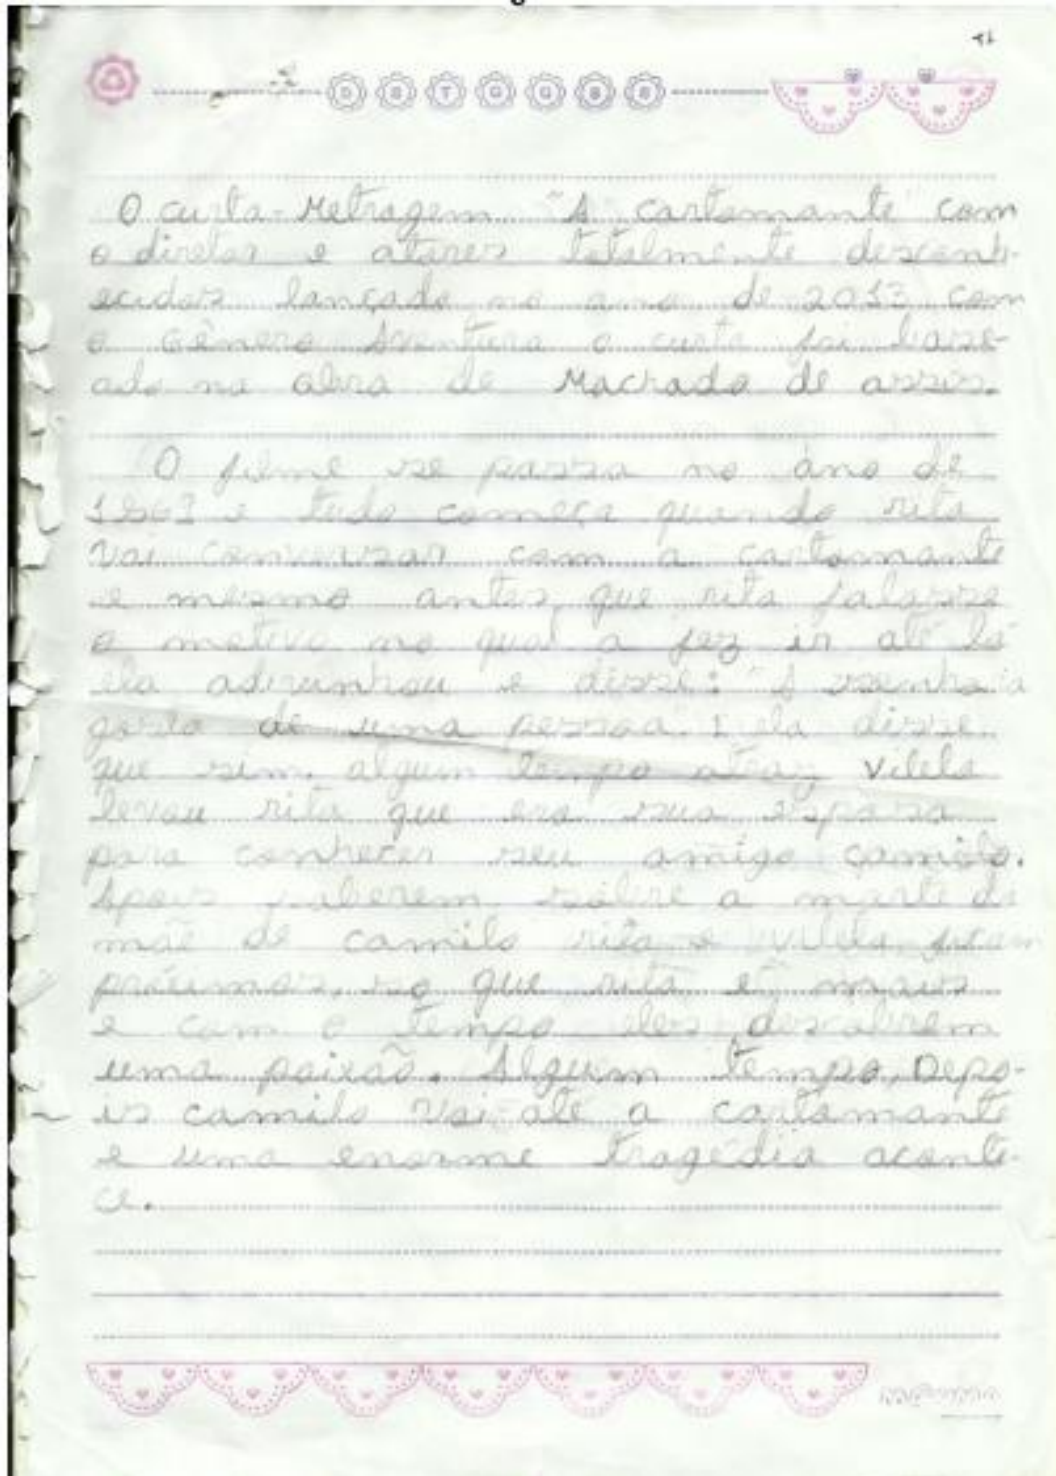 D S T Q Q S S
O curta-Metragem "A cartomante com
o diretor e atores totalmente desconh-
ecidos lançado no ano de 2013 com
o Gênero Aventura o curta foi base-
ado na obra de Machado de assis.
O filme se passa no ano de
e tudo começa quando rita
vai conversar com a cartomante
e mesmo antes que rita falasse
o motivo no qual a fez ir até lá
ela adivinhou e disse: "A senhora
gosta de uma pessoa". E ela disse
que sim. algum tempo atraz vilela
levou rita que era sua esposa
para conhecer seu amigo camilo.
Apois saberem sobre a morte da
mãe de camilo rita e vilela
próximos, so que rita é mais
e com o tempo eles descobrem
uma paixão. Algum tempo, Depo-
is camilo vai até a cartomante
e uma enorme tragédia aconte-
ce.